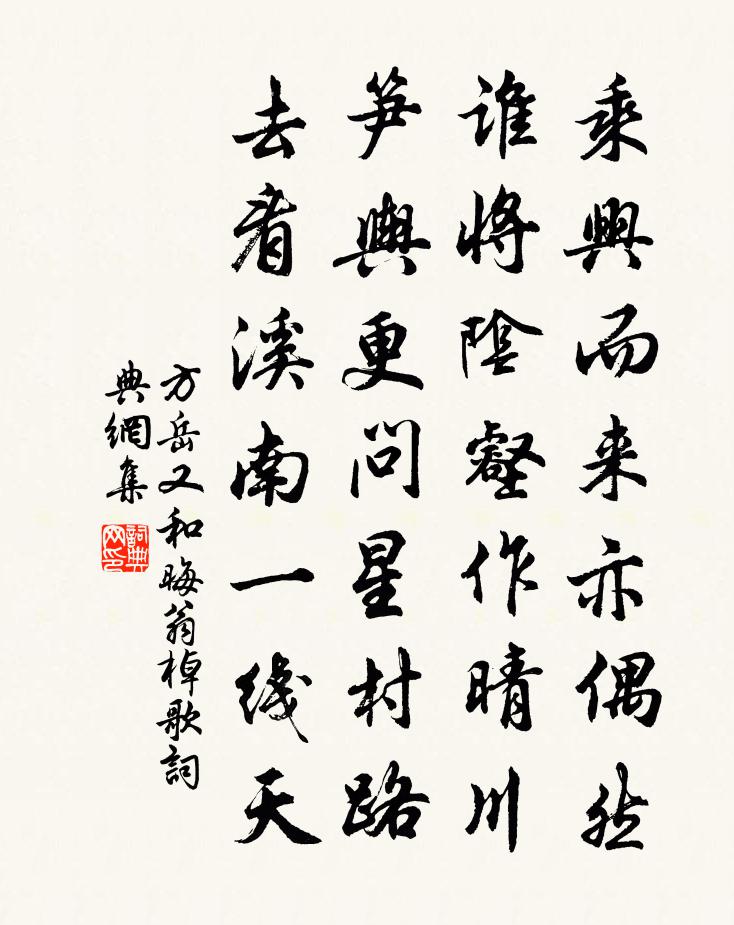 乘興而来亦偶然
誰將陰壑作晴川
笋輿更问星村路
去看溪南一线天
方岳又和晦翁棹歌詞
典網集
詞典网印